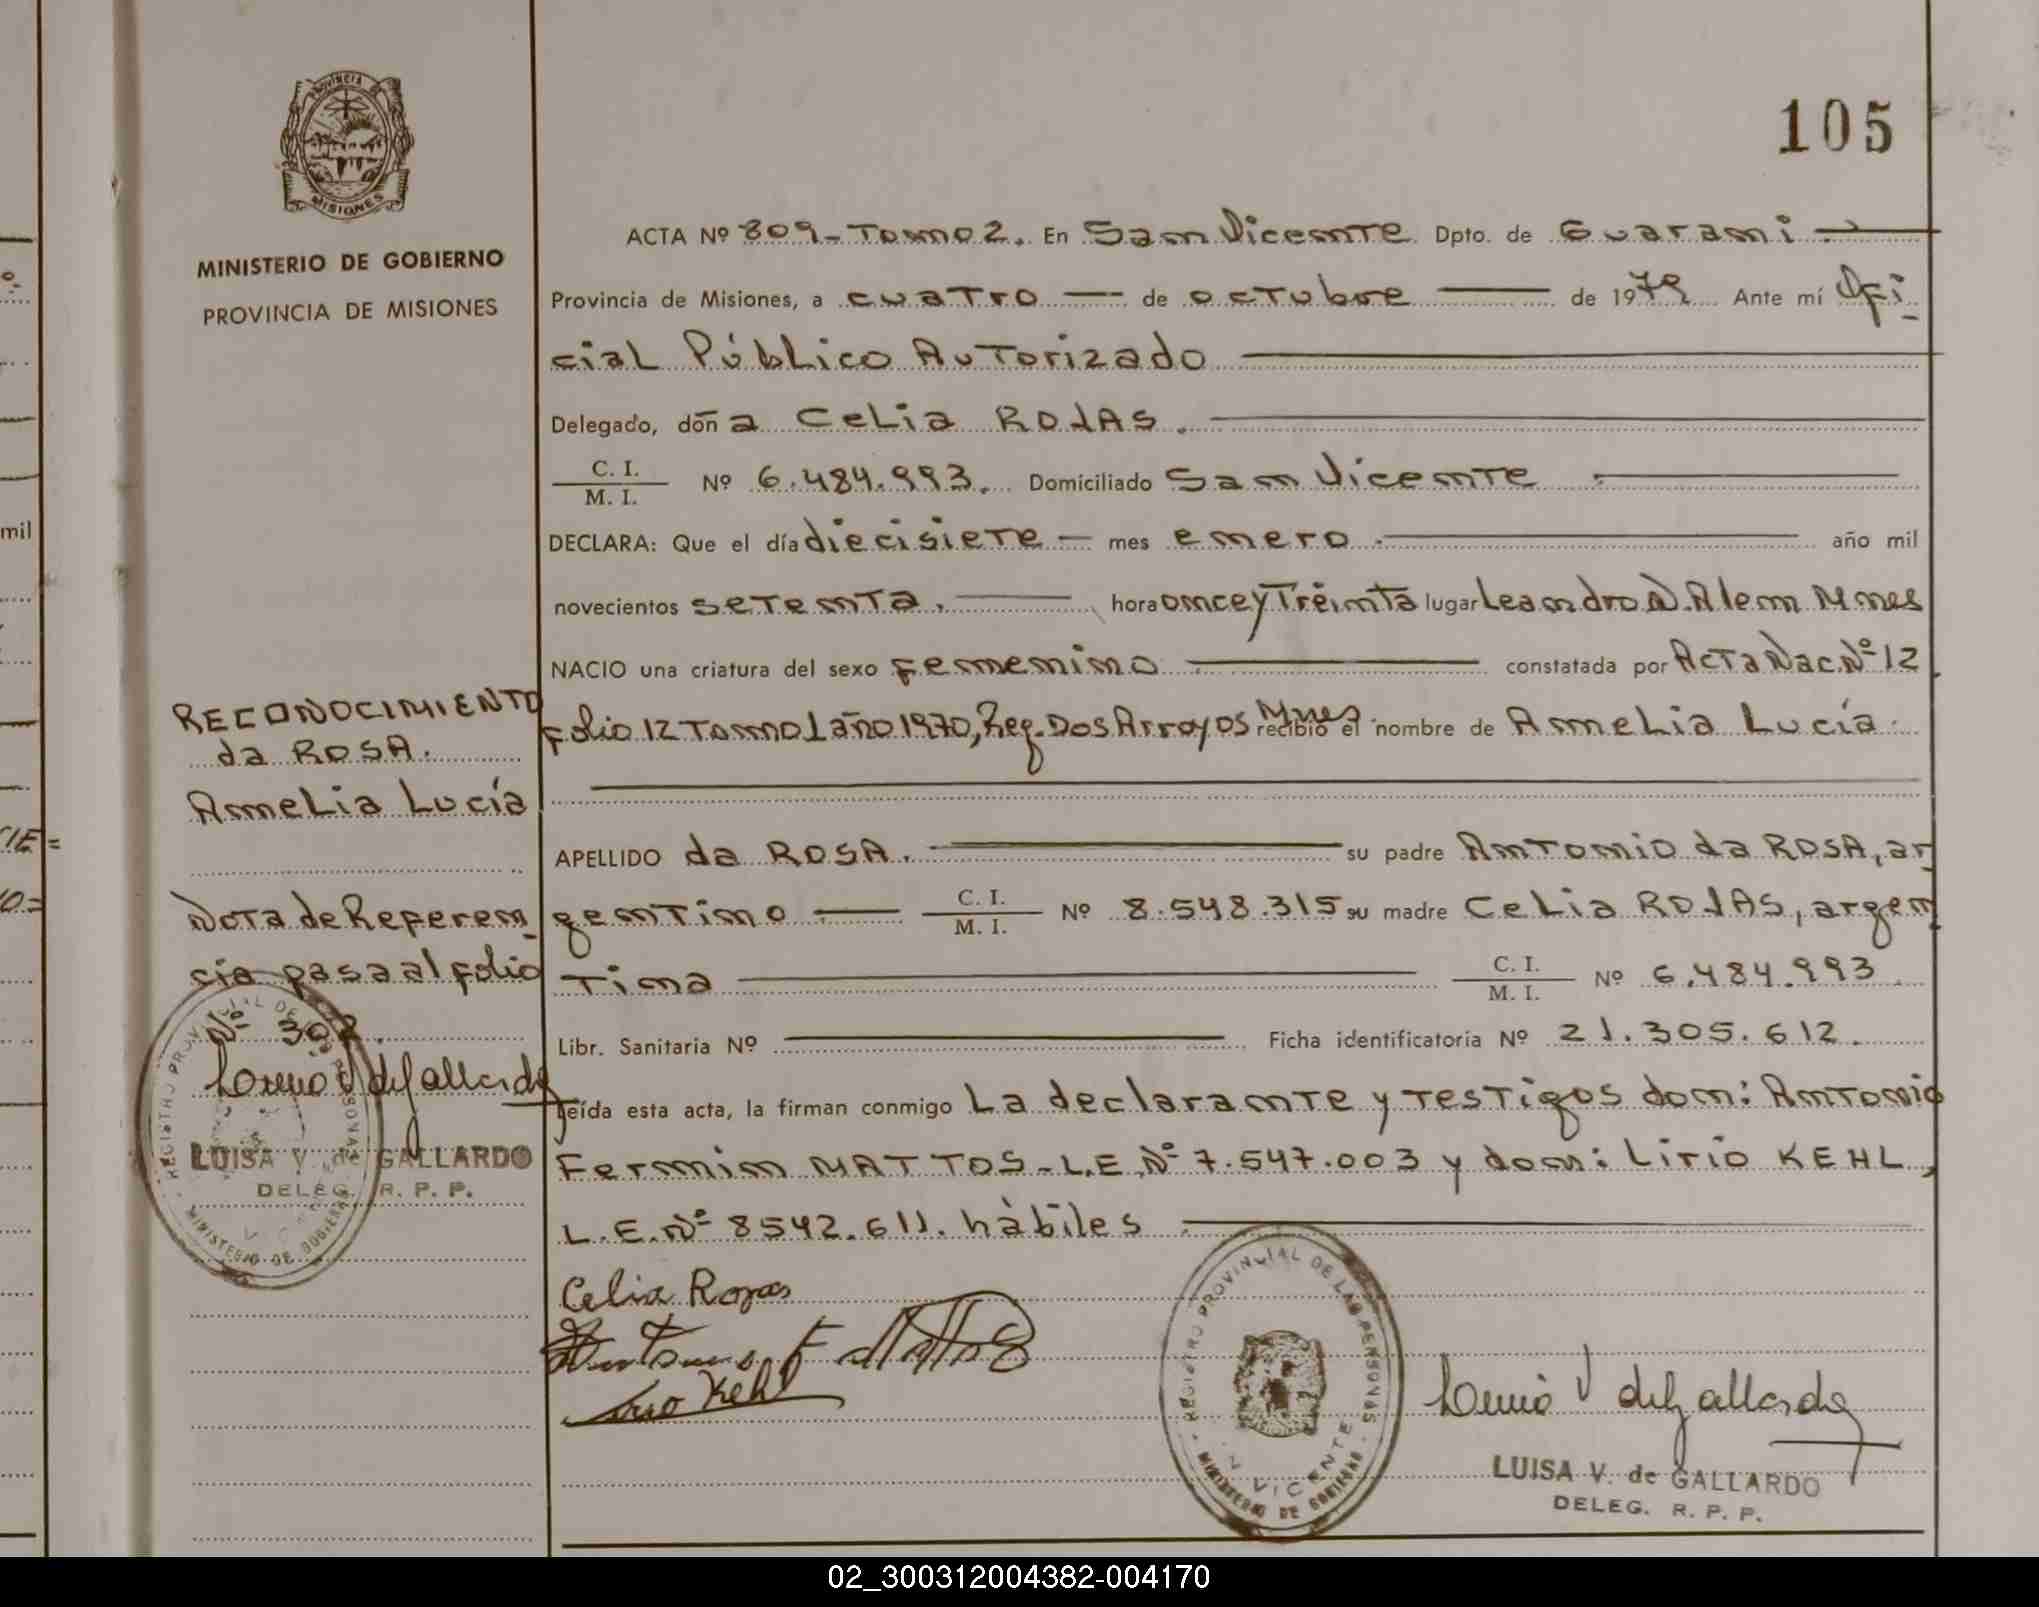 PROVINCIA DE
MISIONES
MINISTERIO DE GOBIERNO
PROVINCIA DE MISIONES
105
ACTA Nº 809-Tomo 2. En San Vicente Dpto. de Guaraní
Provincia de Misiones, a cuatro — de octubre — de 1979 Ante mí Ofi
cial Público Autorizado
Delegado, doña Celia ROJAS.
C. I.
M. I.
Nº 6.484.993. Domiciliado San Vicente
DECLARA: Que el día diecisiete — mes enero. año mil
novecientos setenta. hora once y treinta lugar Leandro N. Alem Mnes
NACIO una criatura del sexo femenino constatada por Acta Nac. Nº 12
folio 12 Tomo 1 año 1970, Reg. Dos Arroyos Mnes. recibió el nombre de Amelia Lucía.
APELLIDO da ROSA. su padre Antonio da ROSA, ar
gentino C. I.
M. I. Nº 8.548.315 su madre Celia ROJAS, argen
tina C. I.
M. I. Nº 6.484.993.
Libr. Sanitaria Nº Ficha identificatoria Nº 21.305.612.
Leída esta acta, la firman conmigo La declarante y testigos don: Antonio
Fermin MATTOS-L.E.Nº 7.547.003 y don: Lirio KEHL,
L.E.Nº 8542.611. hàbiles
Celia Rojas
Kehl
REGISTRO PROVINCIAL DE LAS PERSONAS
VICENTE
MINISTERIO DE GOBIERNO
LUISA V. de GALLARDO
DELEG. R. P. P.
RECONOCIMIENTO
da ROSA.
Amelia Lucía
Nota de Referen
cia pasa al folio
Nº
REGISTRO PROVINCIAL DE PERSONAS
MINISTERIO DE GOBIERNO
LUISA V. de GALLARDO
DELEG. R. P. P.
mil
02_300312004382-004170